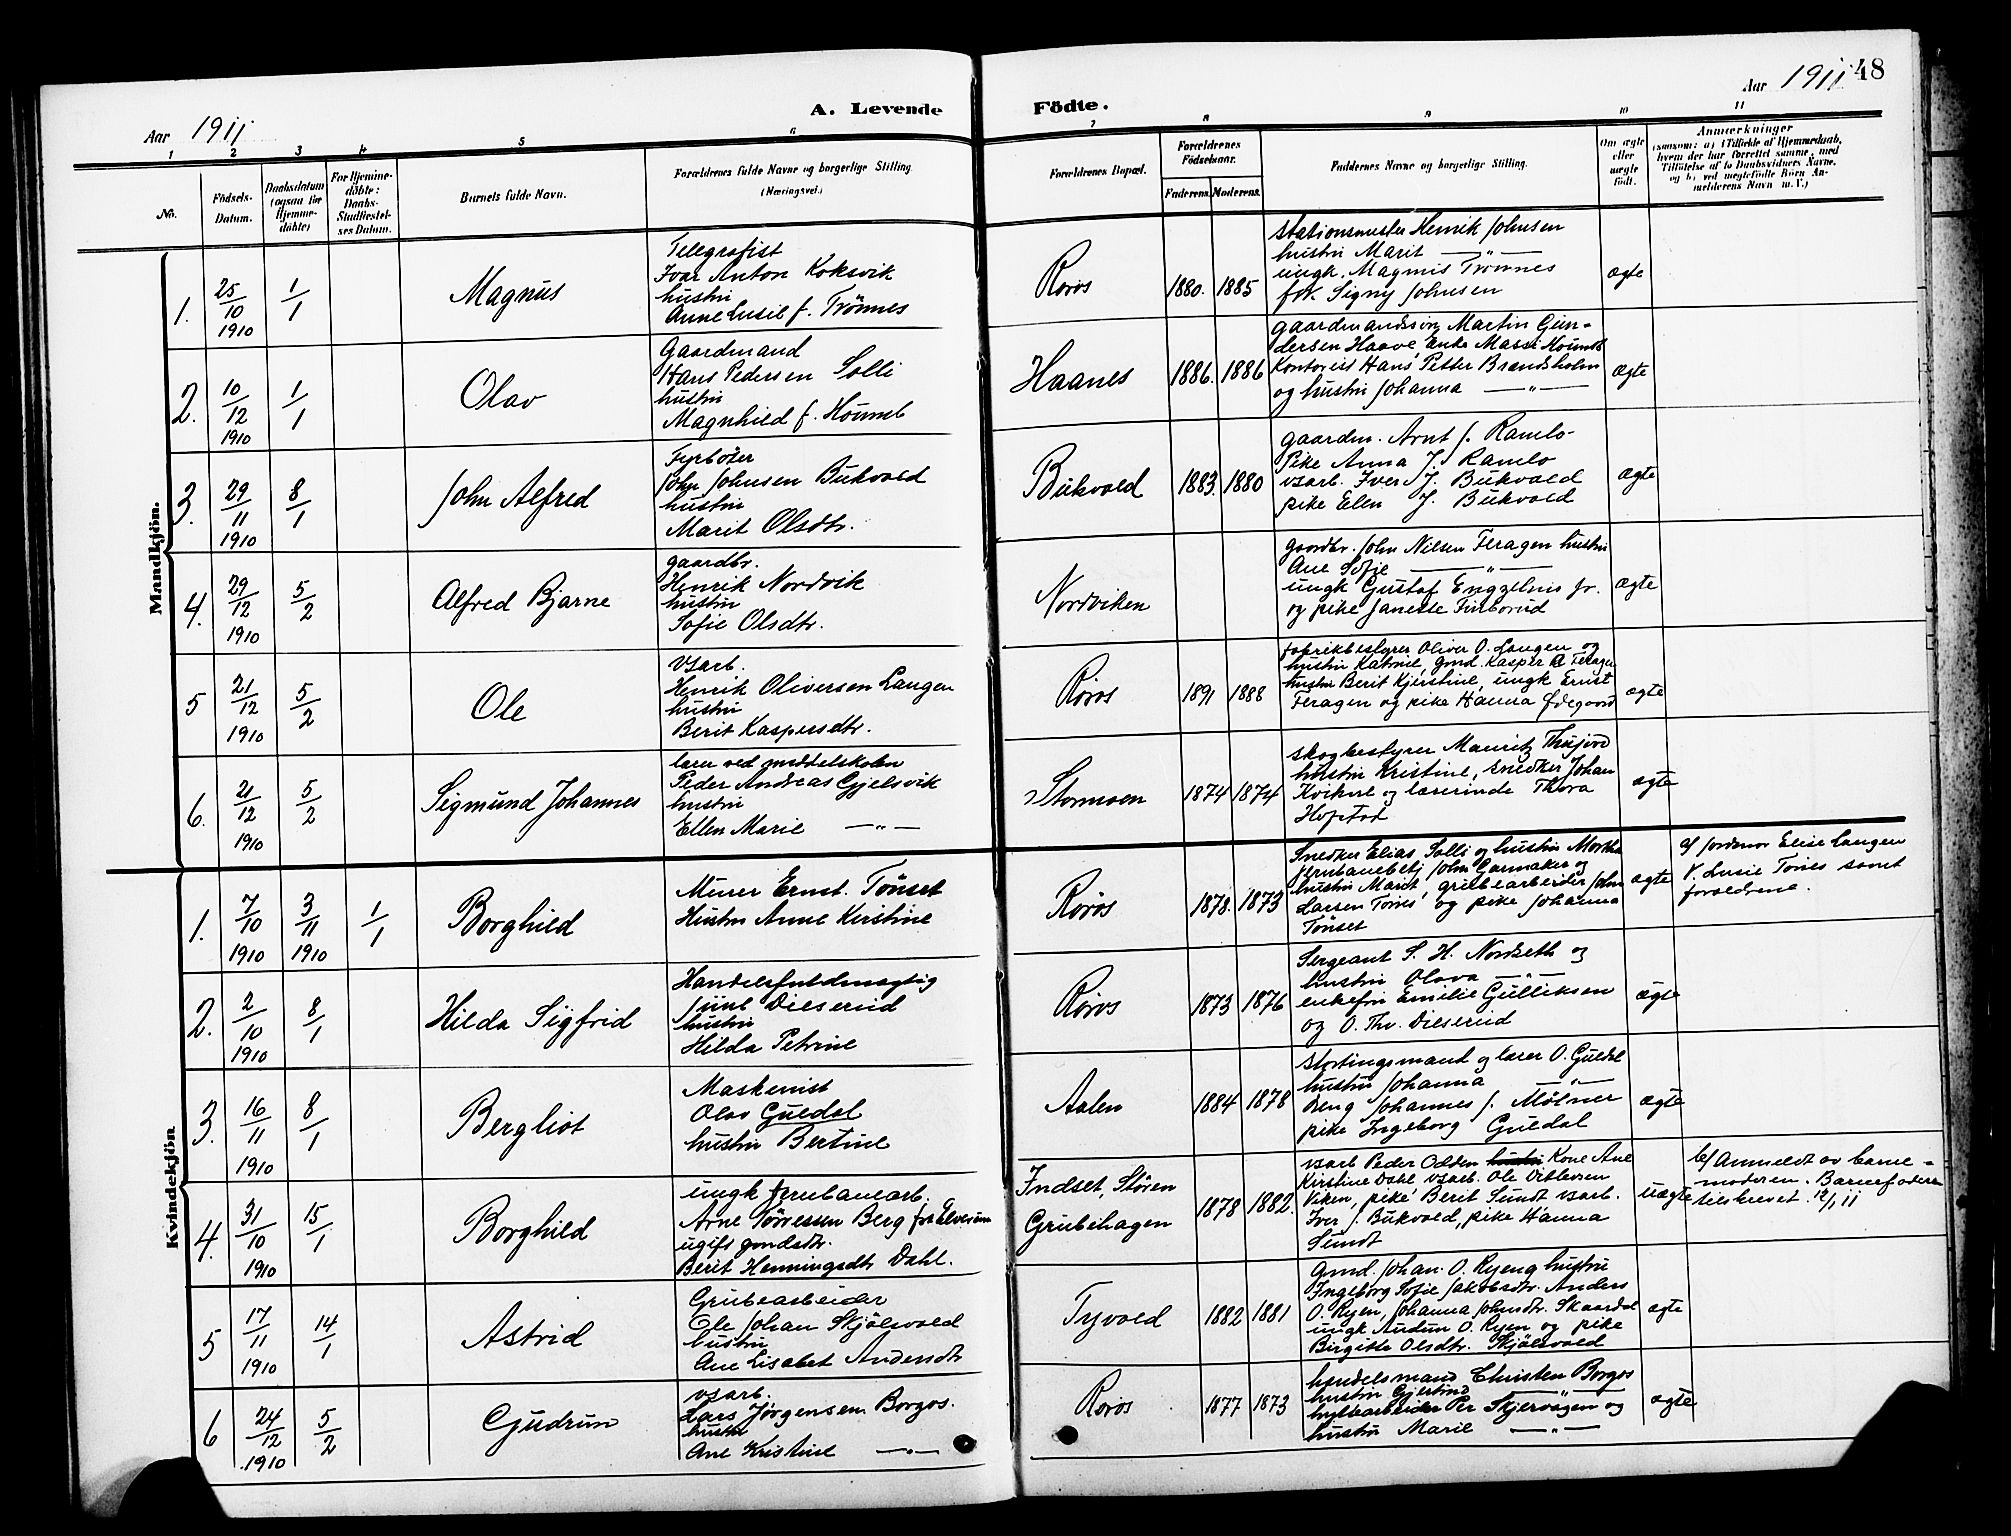 Aar 1911
A. Levende
Födte.
Aar 1911
48
1 2 3 4 5 6 7 8 9 10 11
No.
Födsels-
Datum.
Daabsdatum
(ogsaa for
Hjemme-
döbte)
For Hjemme-
döbte:
Daabs-
Stadfæstel-
ses Datum.
Barnets fulde Navn.
Forældrenes fulde Navne og borgerlige Stilling.
(Næringsvei.)
Forældrenes Bopæl.
Forældrenes
Födselsaar.
Faderens. Moderens.
Faddernes Navne og borgerlige Stilling.
Om ægte
eller
uægte
født.
Anmærkninger
(saasom: a) i Tilfælde af Hjemmedaab,
hvem der har forrettet samme, med
Tilføielse af to Daabsvidners Navne,
og b) ved uægtefödte Börn An-
melderens Navn m. V.)
Mandkjön.
1.
25/10
1910
1/1
Magnus
Telegrafist
Ivar Anton Koksvik
hustru
Anne Lusie f. Trönnes
Røros
1880. 1885
Stationsmester Henrik Johnsen
hustru Marit —"—
ungk. Magnus Trönnes
frk. Signy Johnsen
ægte
2.
10/12
1910
1/1
Olav
Gaardmand
Hans Pedersen Solli
hustru
Magnhild f.
Haanes
1886. 1886
gaardmandssøn Martin Gun-
dersen Haave
Kontorist Hans Petter Brændsholm
og hustru Johanna —"—
ægte
3.
29/11
1910
8/1
John Alfred
Fyrböter
John Johnsen Bukvold
hustru
Marit Olsdtr.
Bukvold
1883. 1880
gaardm. Arnt J. Ramlo
Pike Anna J. Ramlo
vsarb. Iver J. Bukvold
pike Ellen J. Bukvold
ægte
4.
29/12
1910
5/2
Alfred Bjarne
gaardbr.
Henrik Nordvik
hustru
Sofie Olsdtr.
Nordviken
gaardbr. John Nilsen Feragen hustru
Ane Sofie —"—
ungk Gustaf Enggelnis jr.
og pike Janette Finborud
ægte
5
21/12
1910
5/2
Ole
vsarb.
Henrik Oliversen Langen
hustru
Berit Kaspersdtr.
Røros
1891 1888
fabrikbestyrer Oliver O. Langen og
hustru Katrine, gmd. Kasper Feragen
hustru Berit Kjerstine, ungk Ernst
Feragen og pike Hanna Ødegaard
ægte
6.
21/12
1910
5/2
Sigmund Johannes
lærer ved middelskolen
Peder Andreas Gjelsvik
hustru
Ellen Marie —"—
Stormoen
1874 1874
skogbestyrer Mauritz Thujord
hustru Kristine, snedker Johan
Kvikne og lærerinde Thora
Hofstad
ægte
Kvindekjön
1.
7/10
1910
3/11
1910
1/1
Borghild
Murer Ernst Tönset
Hustru Anne Kirstine
Røros
1878. 1873
Snedker Elias Solli og hustru Martha
jernbanebetj John Garmaker og
hustru Marit, grubearbeider John
Larsen Tønes og pike Johanna
Tønset
ægte
a/ jordmor Elise Langen
V. Lusie Tønes samt
forældrene.
2.
2/10
1910
8/1
Hilda Sigfrid
Handelsfuldmægtig
Juul Dieserud
hustru
Hilda Petrine
Røros
1873 1876
Sergeant S. H. Nordseth og
hustru Olava —"—
enkefru Emilie Gulliksen
og O. Thv. Dieserud
ægte
3.
16/11
1910
8/1
Bergliot
Maskinist
Olav Guldal
hustru Bertine
Aalen
1884 1878
stortingsmand og lærer O. Guldal
hustru Johanna —"—
Dreng Johannes J. Mølner
pike Ingeborg Guldal
ægte
4.
31/10
1910
15/1
Borghild
ungk jernbanearb.
Arne Törressen Berg fra Elverum
ugift gmdsdtr.
Berit Henningsdtr Dahl.
Indset, Støren
Grubehagen
1878 1882.
vsarb Peder Odden Kone Ane
Kirstine Dahl vsarb. Ole Ditlevsen
Viken, pike Berit Sundt vsarb.
Iver J. Bukvold, pike Hanna
Sundt
uægte
b/ Anmeldt av barne-
moderen. Barnefaderen
tilskrevet. 12/1 11
5
17/11
1910
14/1
Astrid
Grubearbeider
Ole Johan Skjölsvold
hustru
Ane Lisabet Andersdtr
Tyvold
1882 1881
Gmd. Johan O. Ryeng hustru
Ingeborg Sofie Jakobsdtr. Anders
O. Ryen, Johanna Johnsdtr. Skaardal
ungk Audun O. Ryen og pike
Birgitte Olsdtr. Skjölsvold
ægte
6
24/12
1910
5/2
Gudrun
vsarb.
Lars Jørgensen Borgos.
hustru
Ane Kristine —"—
Røros
1877 1873
handelsmand Christen Borgos
hustru Gjertrud —"—
hyttearbeider Per Skjervagen og
hustru Marie —"—
ægte